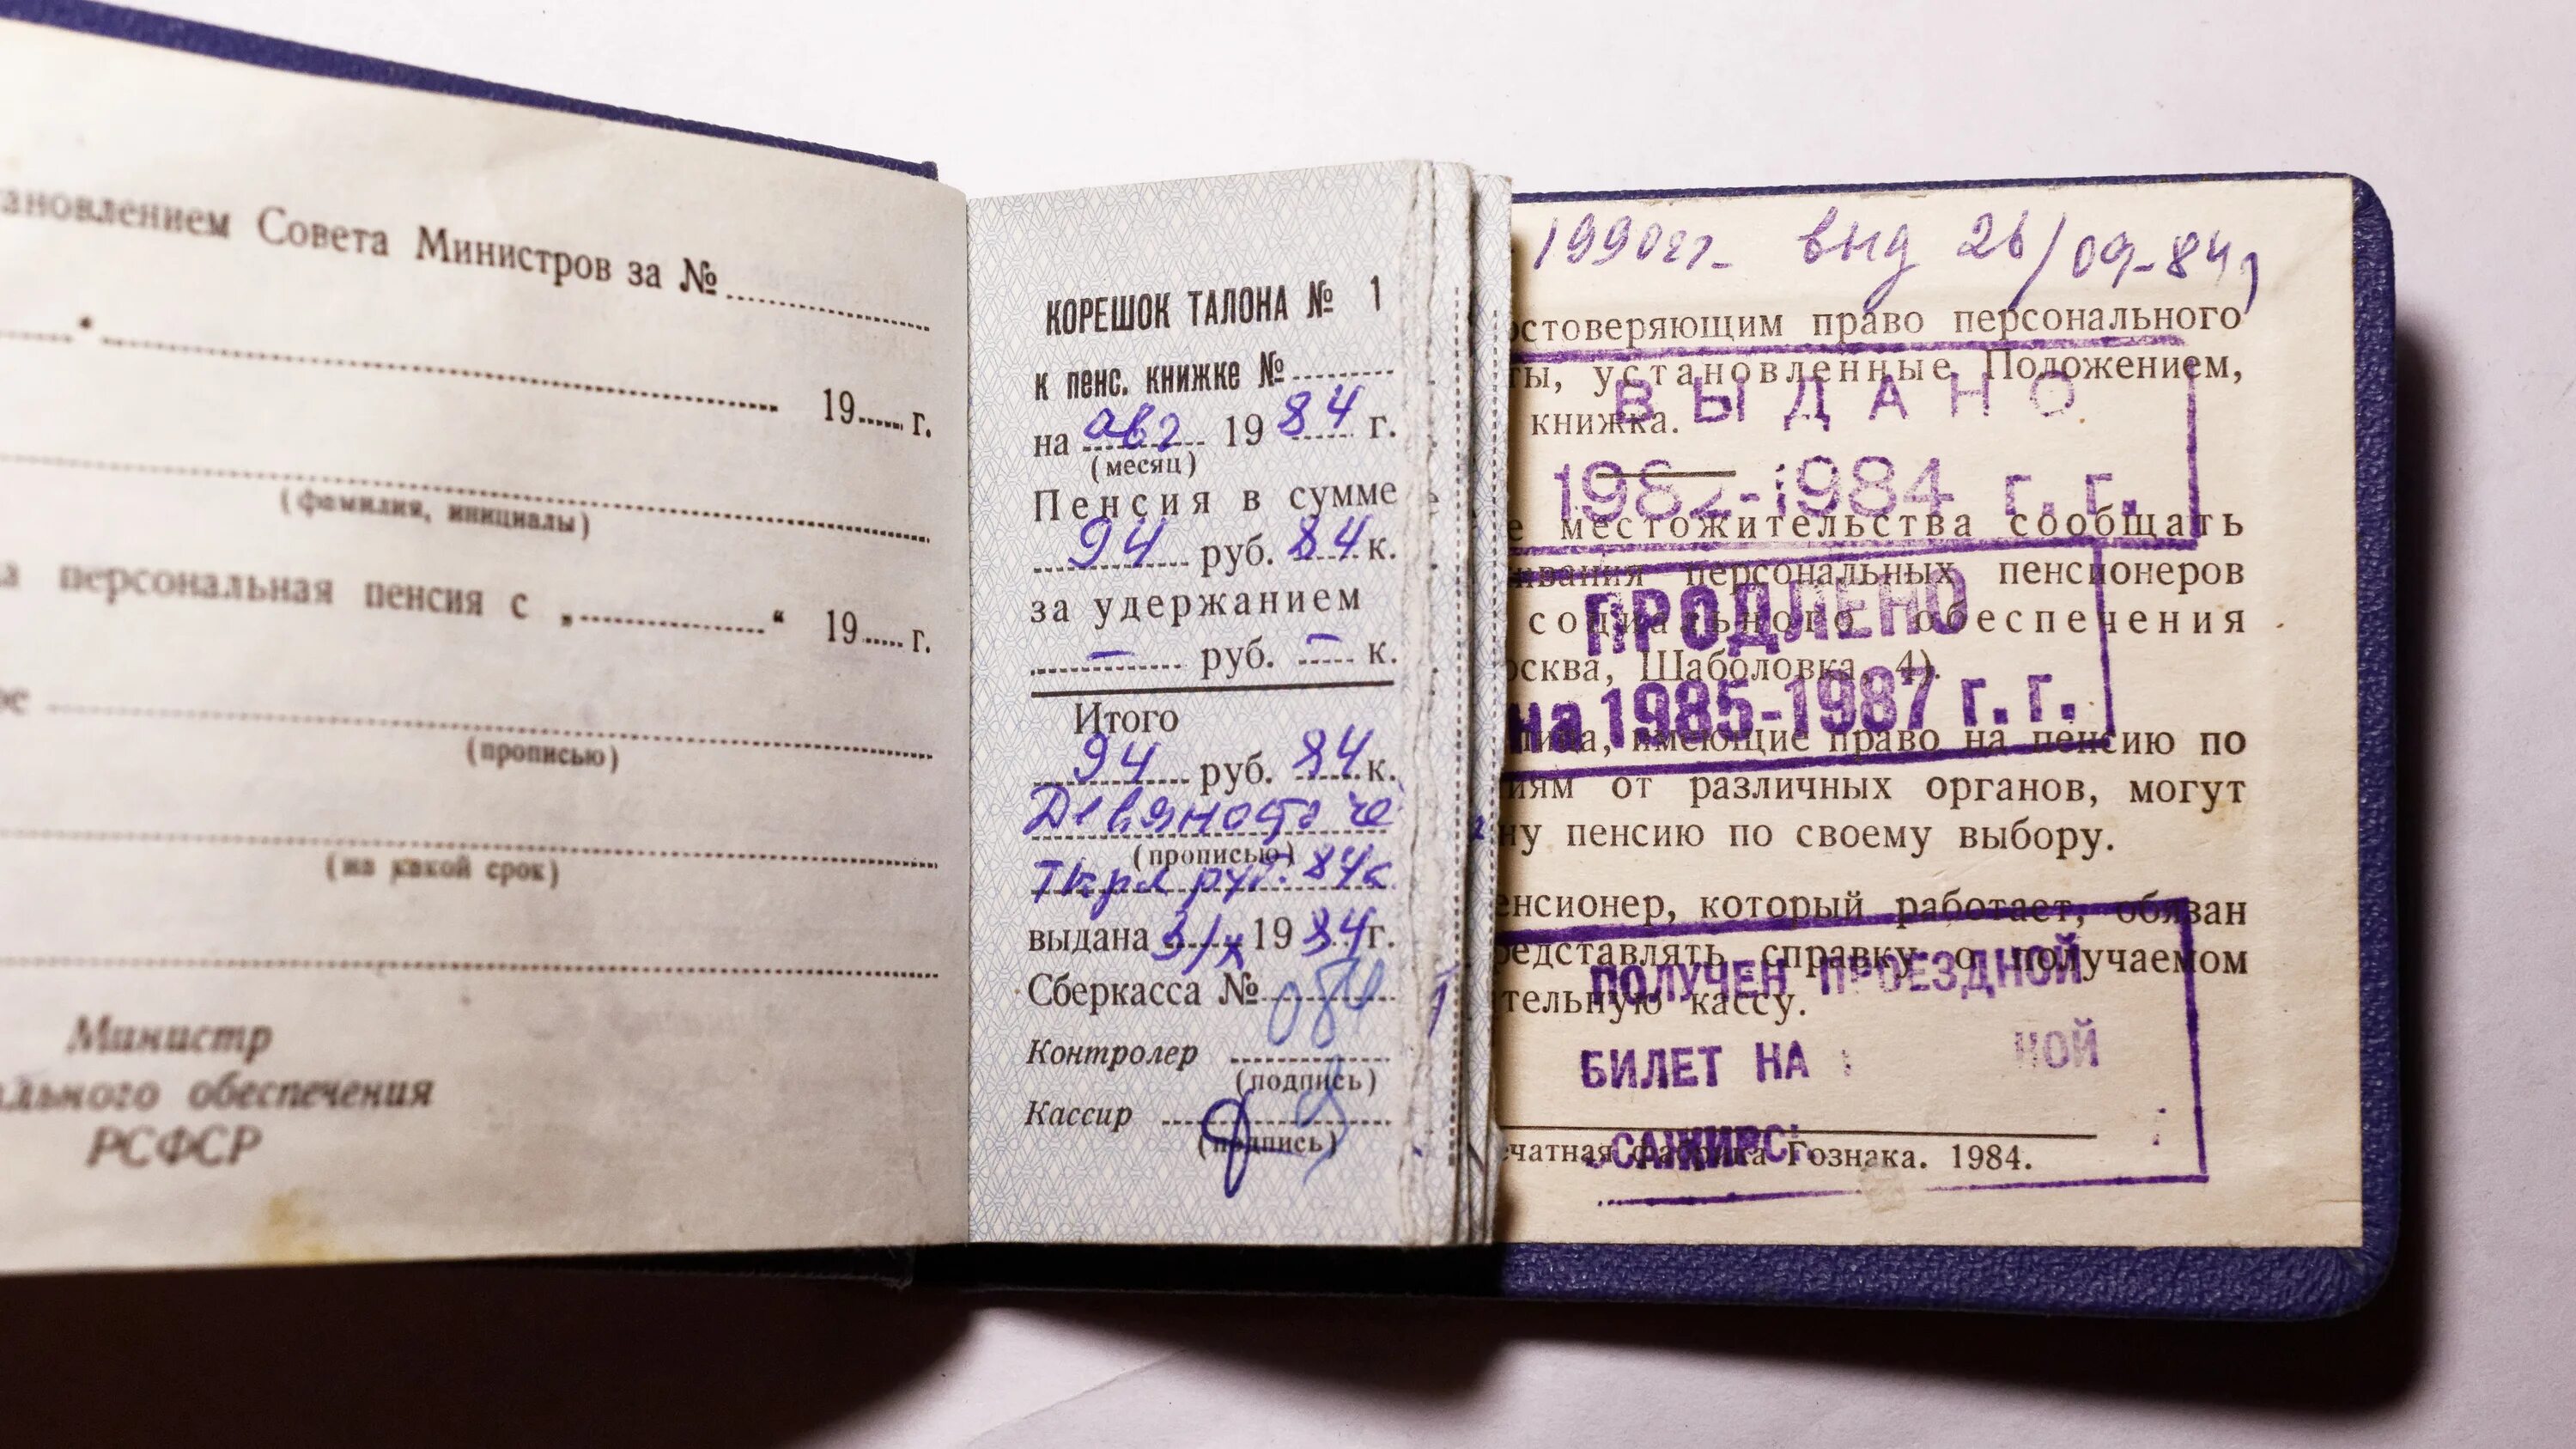 тановлением Совета Министров за №
19 г.
(фамилия, инициалы)
а персональная пенсия с „ “ 19 г.
ое
(прописью)
(на какой срок)
Министр
ального обеспечения
РСФСР
КОРЕШОК ТАЛОНА № 1
к пенс. книжке №
на авг 1984 г.
(месяц)
Пенсия в сумме
94 руб. 84 к.
за удержанием
— руб. — к.
Итого
94 руб. 84 к.
Девяносто че
(прописью)
тыре руб. 84к
выдана 3/X 1984г.
Сберкасса № 084
Контролер
(подпись)
Кассир
(подпись)
1990гг- выд 26/09-84,
остоверяющим право персонального
ты, установленные Положением,
книжка.
ВЫДАНО
1982-1984 г. г.
е местожительства сообщать
ивания персональных пенсионеров
социального обеспечения
осква, Шаболовка, 4).
ПРОДЛЕНО
на 1985-1987 г. г.
лица, имеющие право на пенсию по
иям от различных органов, могут
ну пенсию по своему выбору.
енсионер, который работает, обязан
редставлять справку о получаемом
тельную кассу.
ПОЛУЧЕН ПРОЕЗДНОЙ
БИЛЕТ НА НОЙ
ечатная фабрика Гознака. 1984.